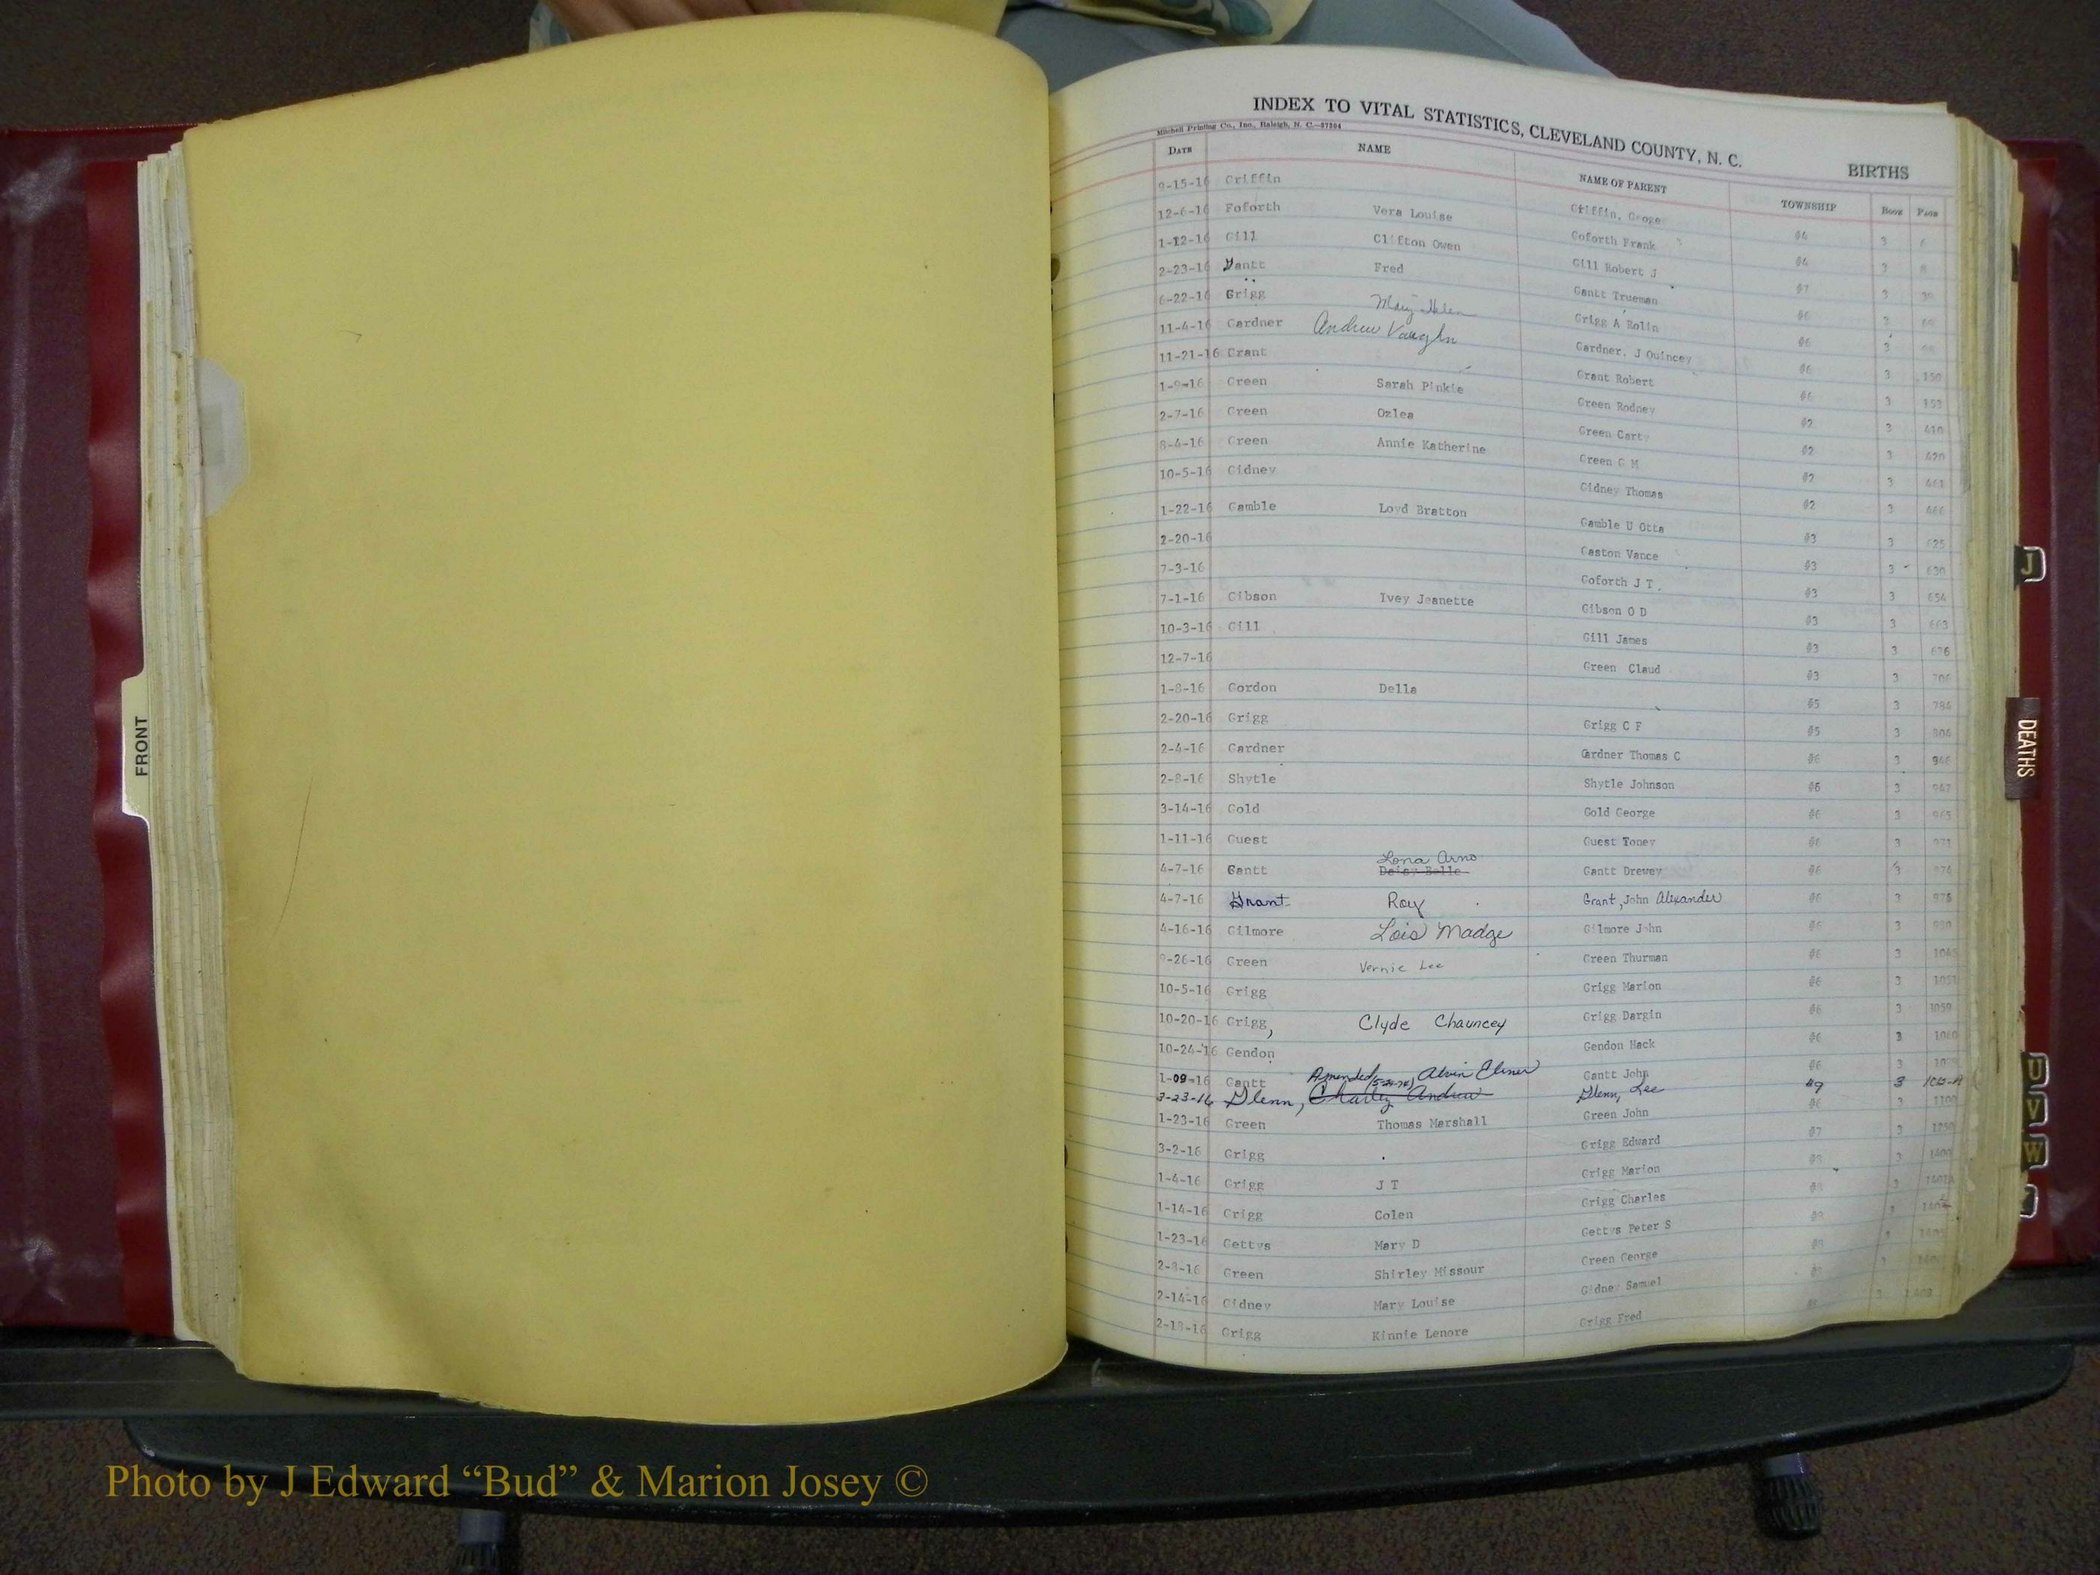 INDEX TO VITAL STATISTICS, CLEVELAND COUNTY, N. C.
BIRTHS
Mitchell Printing Co., Inc., Raleigh, N. C.
DATE NAME NAME OF PARENT TOWNSHIP BOOK PAGE
-15-16 Griffin Griffin, #4 3
12-6-16 Foforth Vera Louise Goforth Frank #4 3
1-12-16 Gill Clifton Owen Gill Robert J #7 3
2-23-16 Gantt Fred Gantt Trueman #6 3
6-22-16 Grigg Mary Helen Grigg A Rolin #6 3
11-4-16 Gardner Andrew Vaughn Gardner, J Quincey #6 3 150
11-21-16 Grant Grant Robert #6 3 153
1-9-16 Green Sarah Pinkie Green Rodney #2 3 410
2-7-16 Green Ozlea Green Carty #2 3 420
8-4-16 Green Annie Katherine Green G M #2 3 461
10-5-16 Gidney Gidney Thomas #2 3 466
1-22-16 Gamble Loyd Bratton Gamble U Otta #3 3 625
2-20-16 Gaston Vance #3 3 630
7-3-16 Goforth J T #3 3 654
7-1-16 Gibson Ivey Jeanette Gibson O D #3 3 663
10-3-16 Gill Gill James #3 3 676
12-7-16 Green Claud #3 3 706
1-8-16 Gordon Della #5 3 784
2-20-16 Grigg Grigg C F #5 3 804
2-4-16 Gardner Gardner Thomas C #6 3 946
2-8-16 Shytle Shytle Johnson #6 3 947
3-14-16 Gold Gold George #6 3 965
1-11-16 Guest Guest Toney #6 3 971
Lona Arno
4-7-16 Gantt Daisy Belle Gantt Drewey #6 3 974
4-7-16 Grant Roy Grant, John Alexander #6 3 975
4-16-16 Gilmore Lois Madge Gilmore John #6 3 980
9-26-16 Green Vernie Lee Green Thurman #6 3
10-5-16 Grigg Grigg Marion #6 3
10-20-16 Grigg, Clyde Chauncey Grigg Dargin #6 3 1059
10-24-16 Gendon Gendon Hack #6 3
1-09-16 Gantt Amended Alvin Elmer Gantt John #6 3
3-23-16 Glenn, Charley Andrew Glenn, Lee #9 3
1-23-16 Green Thomas Marshall Green John #6 3 1100
3-2-16 Grigg Grigg Edward #7 3 1250
1-4-16 Grigg J T Grigg Marion 3 1400
1-14-16 Grigg Colen Grigg Charles 3
1-23-16 Gettys Mary D Gettys Peter S
2-8-16 Green Shirley Missour Green George
2-14-16 Gidney Mary Louise Gidney Samuel
2-18-16 Grigg Kinnie Lenore Grigg Fred 3
FRONT
J
DEATHS
U
V
W
Photo by J Edward “Bud” & Marion Josey ©